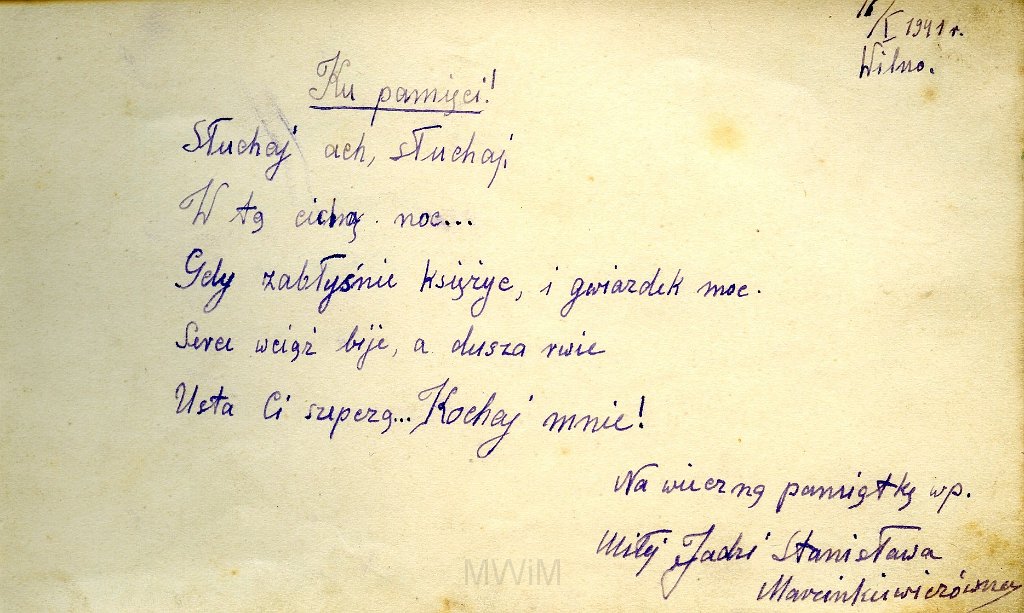 16/I 1941 r.
Wilno.
Ku pamięci!
Słuchaj ach, słuchaj,
W tę cichą noc...
Gdy zabłyśnie księżyc, i gwiazdek moc.
Serce wciąż bije, a dusza rwie
Usta Ci szepczą... Kochaj mnie!
Na wieczną pamiątkę wp.
Miłej Jadzi Stanisława
Marcinkiewiczówna
MWiM